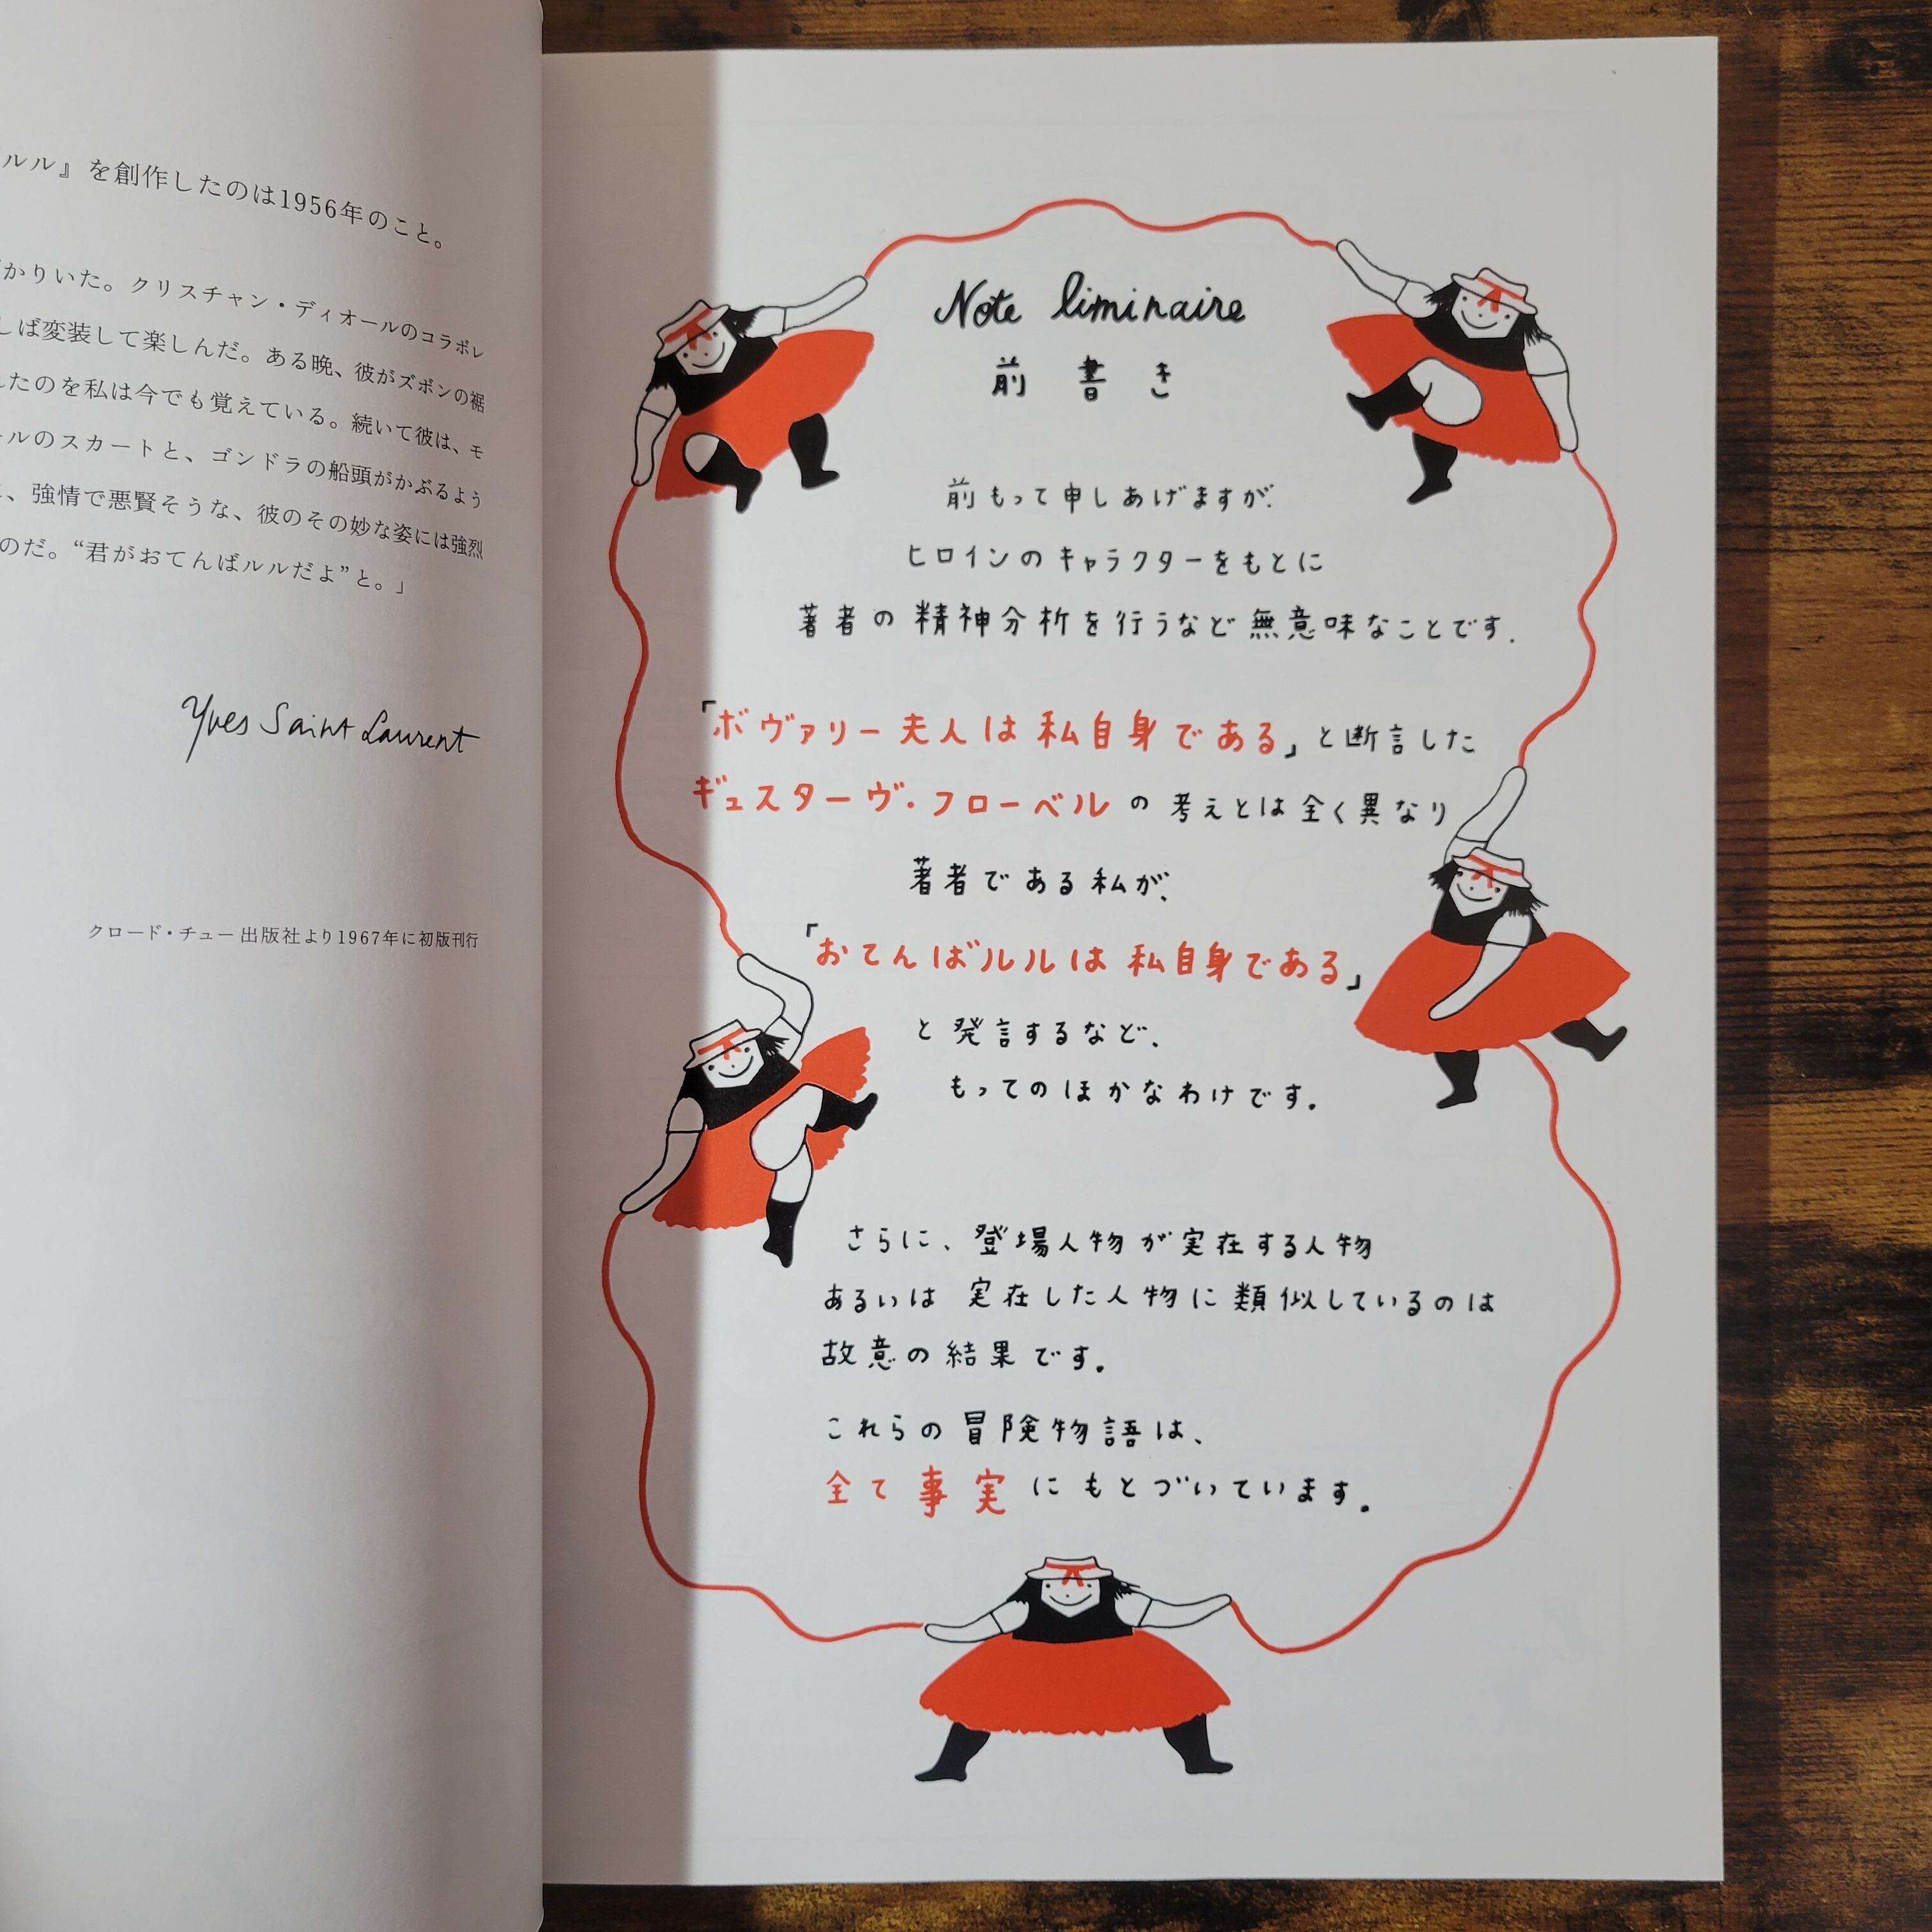 ルル』を創作したのは1956年のこと。
かりいた。クリスチャン・ディオールのコラボレ
しば変装して楽しんだ。ある晩、彼がズボンの裾
たのを私は今でも覚えている。続いて彼は、モ
ールのスカートと、ゴンドラの船頭がかぶるよう
、強情で悪賢そうな、彼のその妙な姿には強烈
のだ。“君がおてんばルルだよ”と。」
Yves Saint Laurent
クロード・チュー出版社より1967年に初版刊行
Note liminaire
前書き
前もって申しあげますが、
ヒロインのキャラクターをもとに
著者の精神分析を行うなど無意味なことです.
「ボヴァリー夫人は私自身である」と断言した
ギュスターヴ・フローベルの考えとは全く異なり
著者である私が、
「おてんばルルは私自身である」
と発言するなど、
もってのほかなわけです.
さらに、登場人物が実在する人物
あるいは実在した人物に類似しているのは
故意の結果です.
これらの冒険物語は、
全て事実にもとづいています.